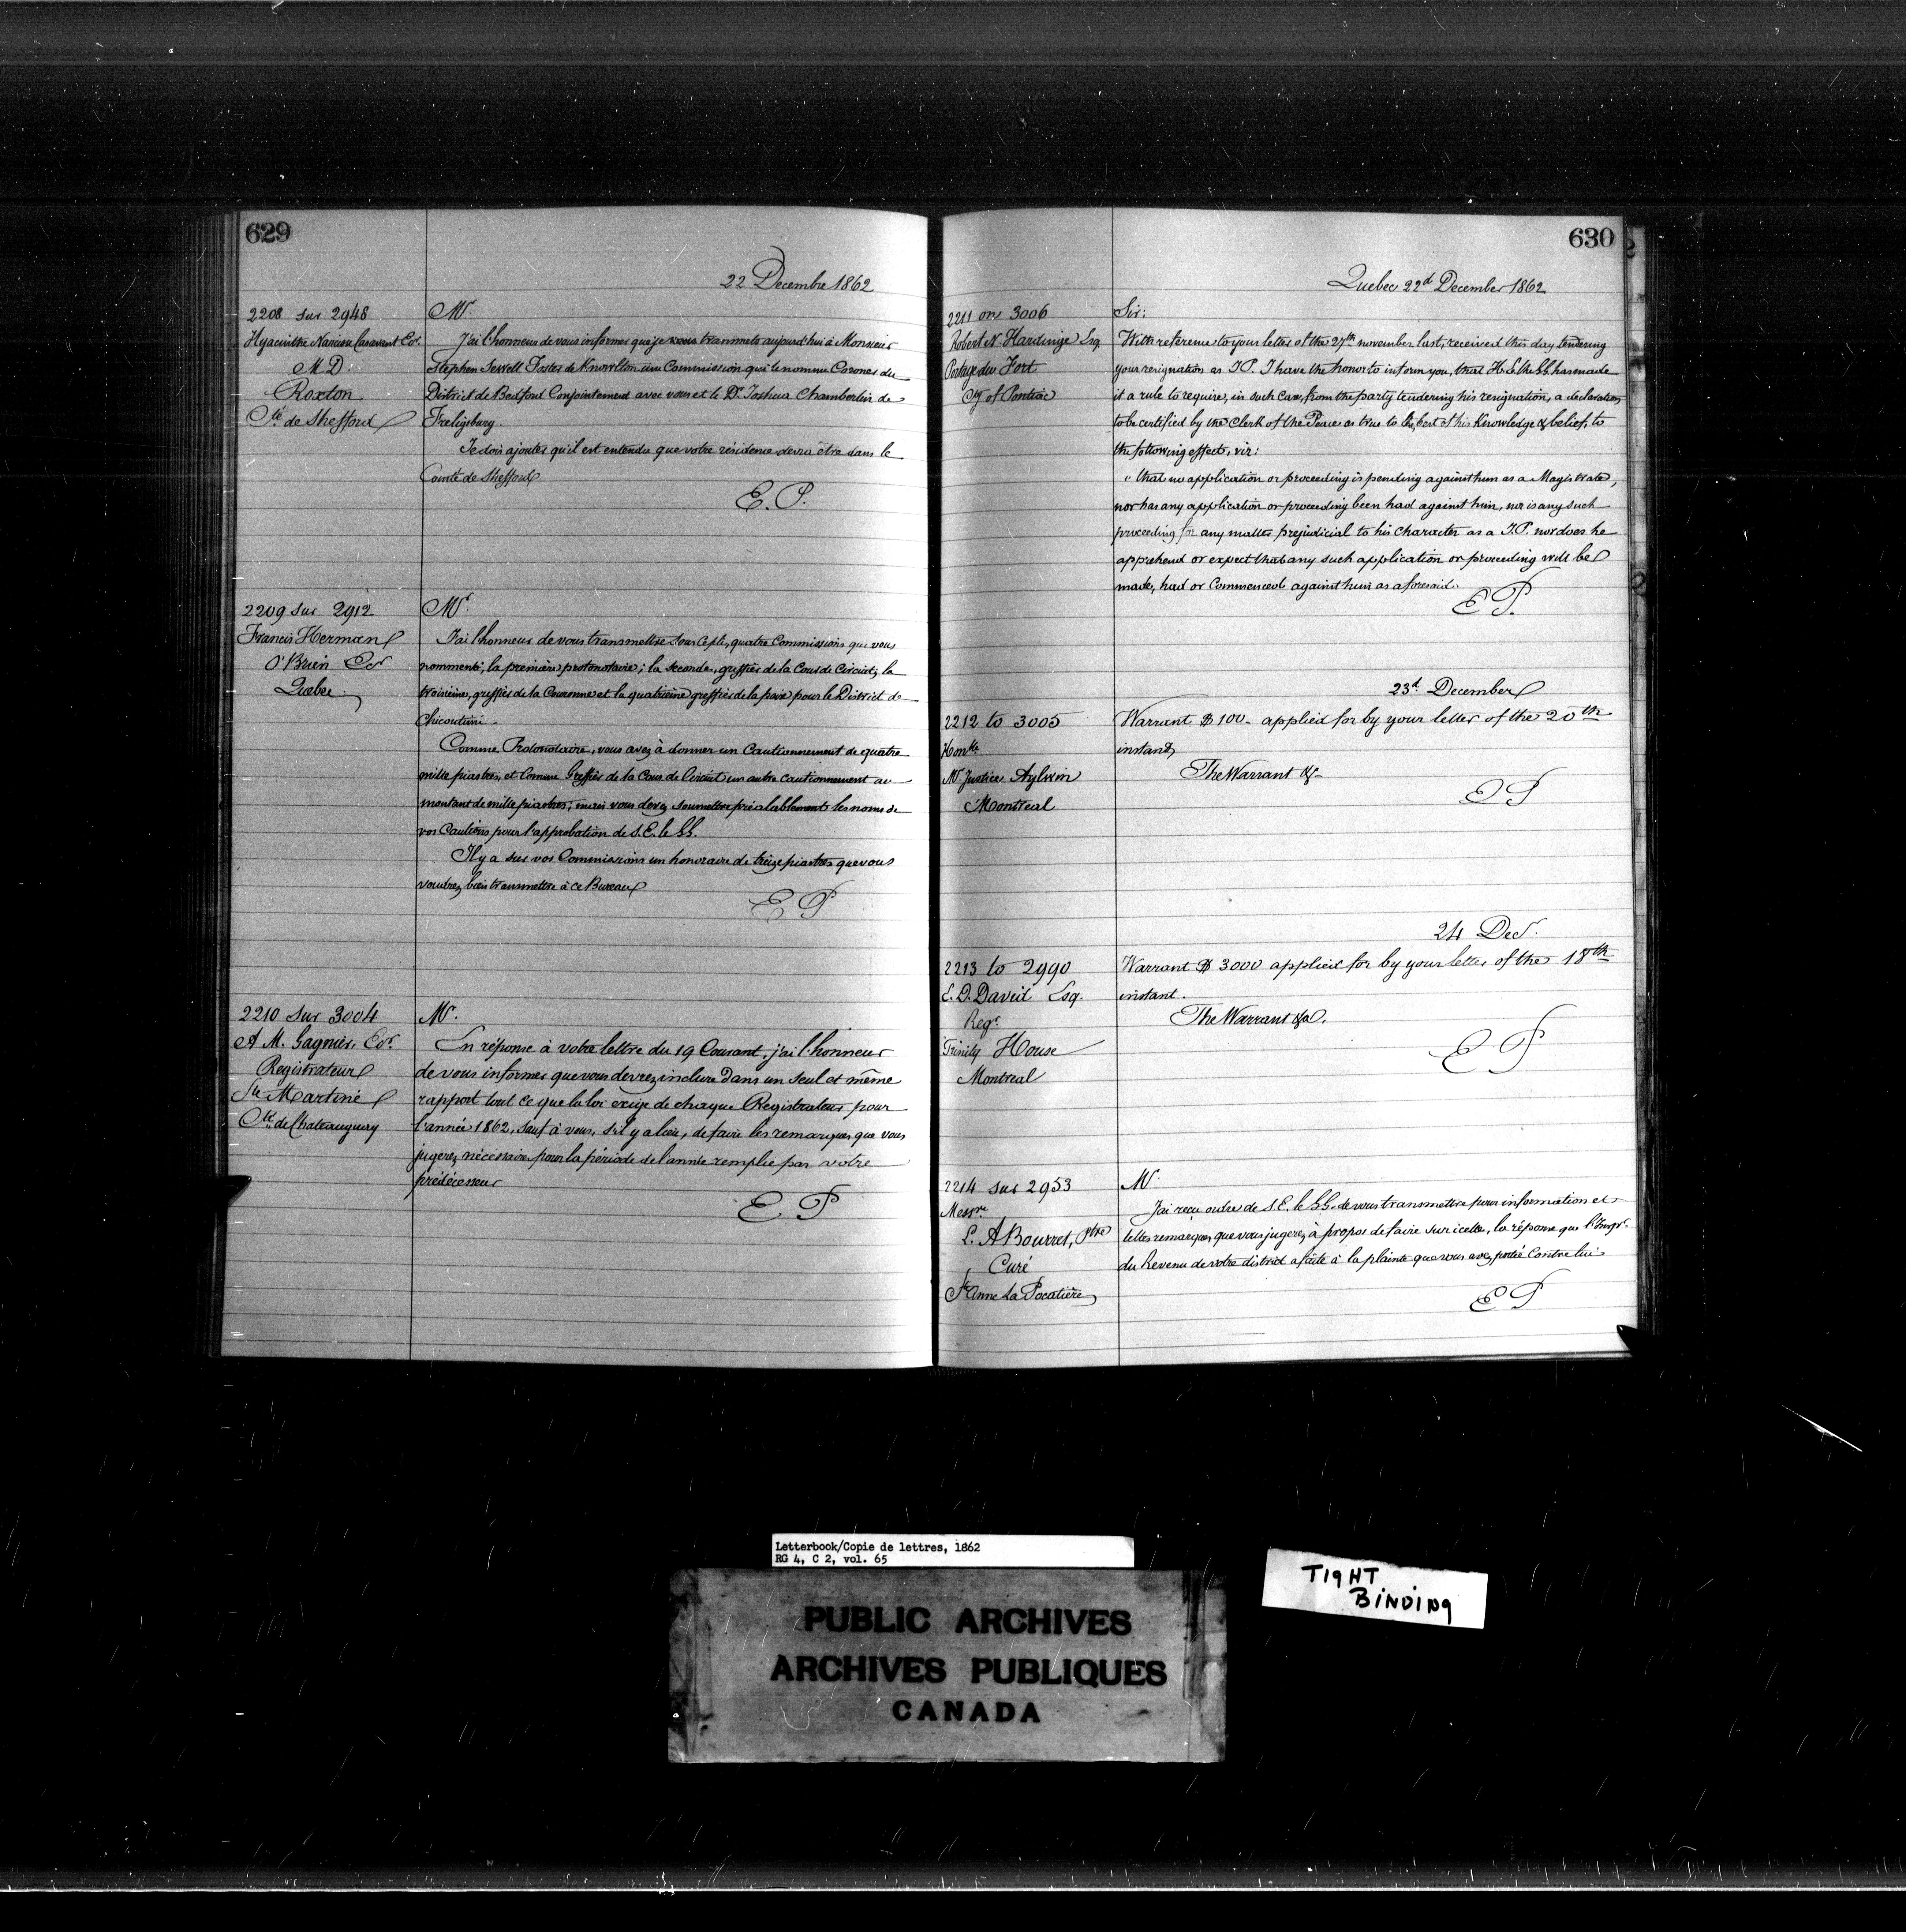 629
22 Decembre 1862
2208 sur 2948
Hyacinthe Narcisse Casavant Ecr
M D.
Roxton
Cté de Shefford
Mr.
J'ai l'honneur de vous informer que je vous transmets aujourd'hui à Monsieur
Stephen Sewell Foster de Knowlton une Commission qui le nomme Coroner du
District de Bedford Conjointement avec vous et le Dr Joshua Chamberlin de
Freligsburg.
Je dois ajouter qu'il est entendu que votre résidence devra être dans le
Comté de Shefford
E. P.
2209 sur 2912
Francis Herman
O'Brien Ecr
Quebec
Mr.
J'ai l'honneur de vous transmettre sous ce pli, quatre Commissions qui vous
nomment, la première protonotaire; la seconde, greffier de la Cour de Circuit, la
troisième, greffier de la Couronne et la quatrième greffier de la paix pour le District de
Chicoutimi.
Comme Protonotaire, vous avez à donner un Cautionnement de quatre
mille piastres, et Comme Greffier de la Cour de Circuit un autre cautionnement au
montant de mille piastres; mais vous devez soumettre préalablement les noms de
vos Cautions pour l'approbation de S. E. le GG.
Il y a sur vos Commissions un honoraire de treize piastres que vous
voudrez bien transmettre à ce Bureau
E P
2210 sur 3004
A M. Gagnier, Ecr.
Registrateur
Ste Martine
Cté de Chateauguay
Mr.
En réponse à votre lettre du 19 Courant, j'ai l'honneur
de vous informer que vous devrez inclure dans un seul et même
rapport tout ce que la loi exige de chaque Registrateur pour
l'année 1862, sauf à vous, s'il y a lieu, de faire les remarques que vous
jugerez nécessaires pour la période de l'année remplie par votre
prédécesseur
E P
630
Quebec 22d December 1862
2211 on 3006
Robert N. Hardinge Esq.
Portage du Fort
Cty of Pontiac
Sir:
With reference to your letter of the 27th november last, received this day, tendering
your resignation as J P. I have the honor to inform you, that H. E. the GG. has made
it a rule to require, in such Case, from the party tendering his resignation, a declaration
to be certified by the Clerk of the Peace as true to the best of his Knowledge & belief, to
the following effect, viz:
"that no application or proceeding is pending against him as a Magistrate,
nor has any application or proceeding been had against him, nor is any such
proceeding for any matter prejudicial to his Character as a J.P. nor does he
apprehend or expect that any such application or proceeding will be
made, had or Commenced against him as aforesaid.
E P.
23d. December
2212 to 3005
Honble
Mr Justice Aylwin
Montreal
Warrant $ 100- applied for by your letter of the 20th
instant,
The Warrant &-
E P
24 Decr.
2213 to 2990
E. D. David Esq.
Regr.
Trinity House
Montreal
Warrant $ 3000 applied for by your letter of the 18th
instant.
The Warrant &a.
E. P
2214 sur 2953
Messre
L. A Bourret, Ptre
Curé
Ste Anne La Pocatière
Mr.
J'ai reçu ordre de S. E. le GG. de vous transmettre pour information et
telles remarques que vous jugerez à propos de faire sur icelle, la réponse que l'Inspr.
du Revenu de votre district a faite à la plainte que vous avez portée Contre lui
E P
Letterbook/Copie de lettres, 1862
RG 4, C 2, vol. 65
TIGHT
BINDING
PUBLIC ARCHIVES
ARCHIVES PUBLIQUES
CANADA